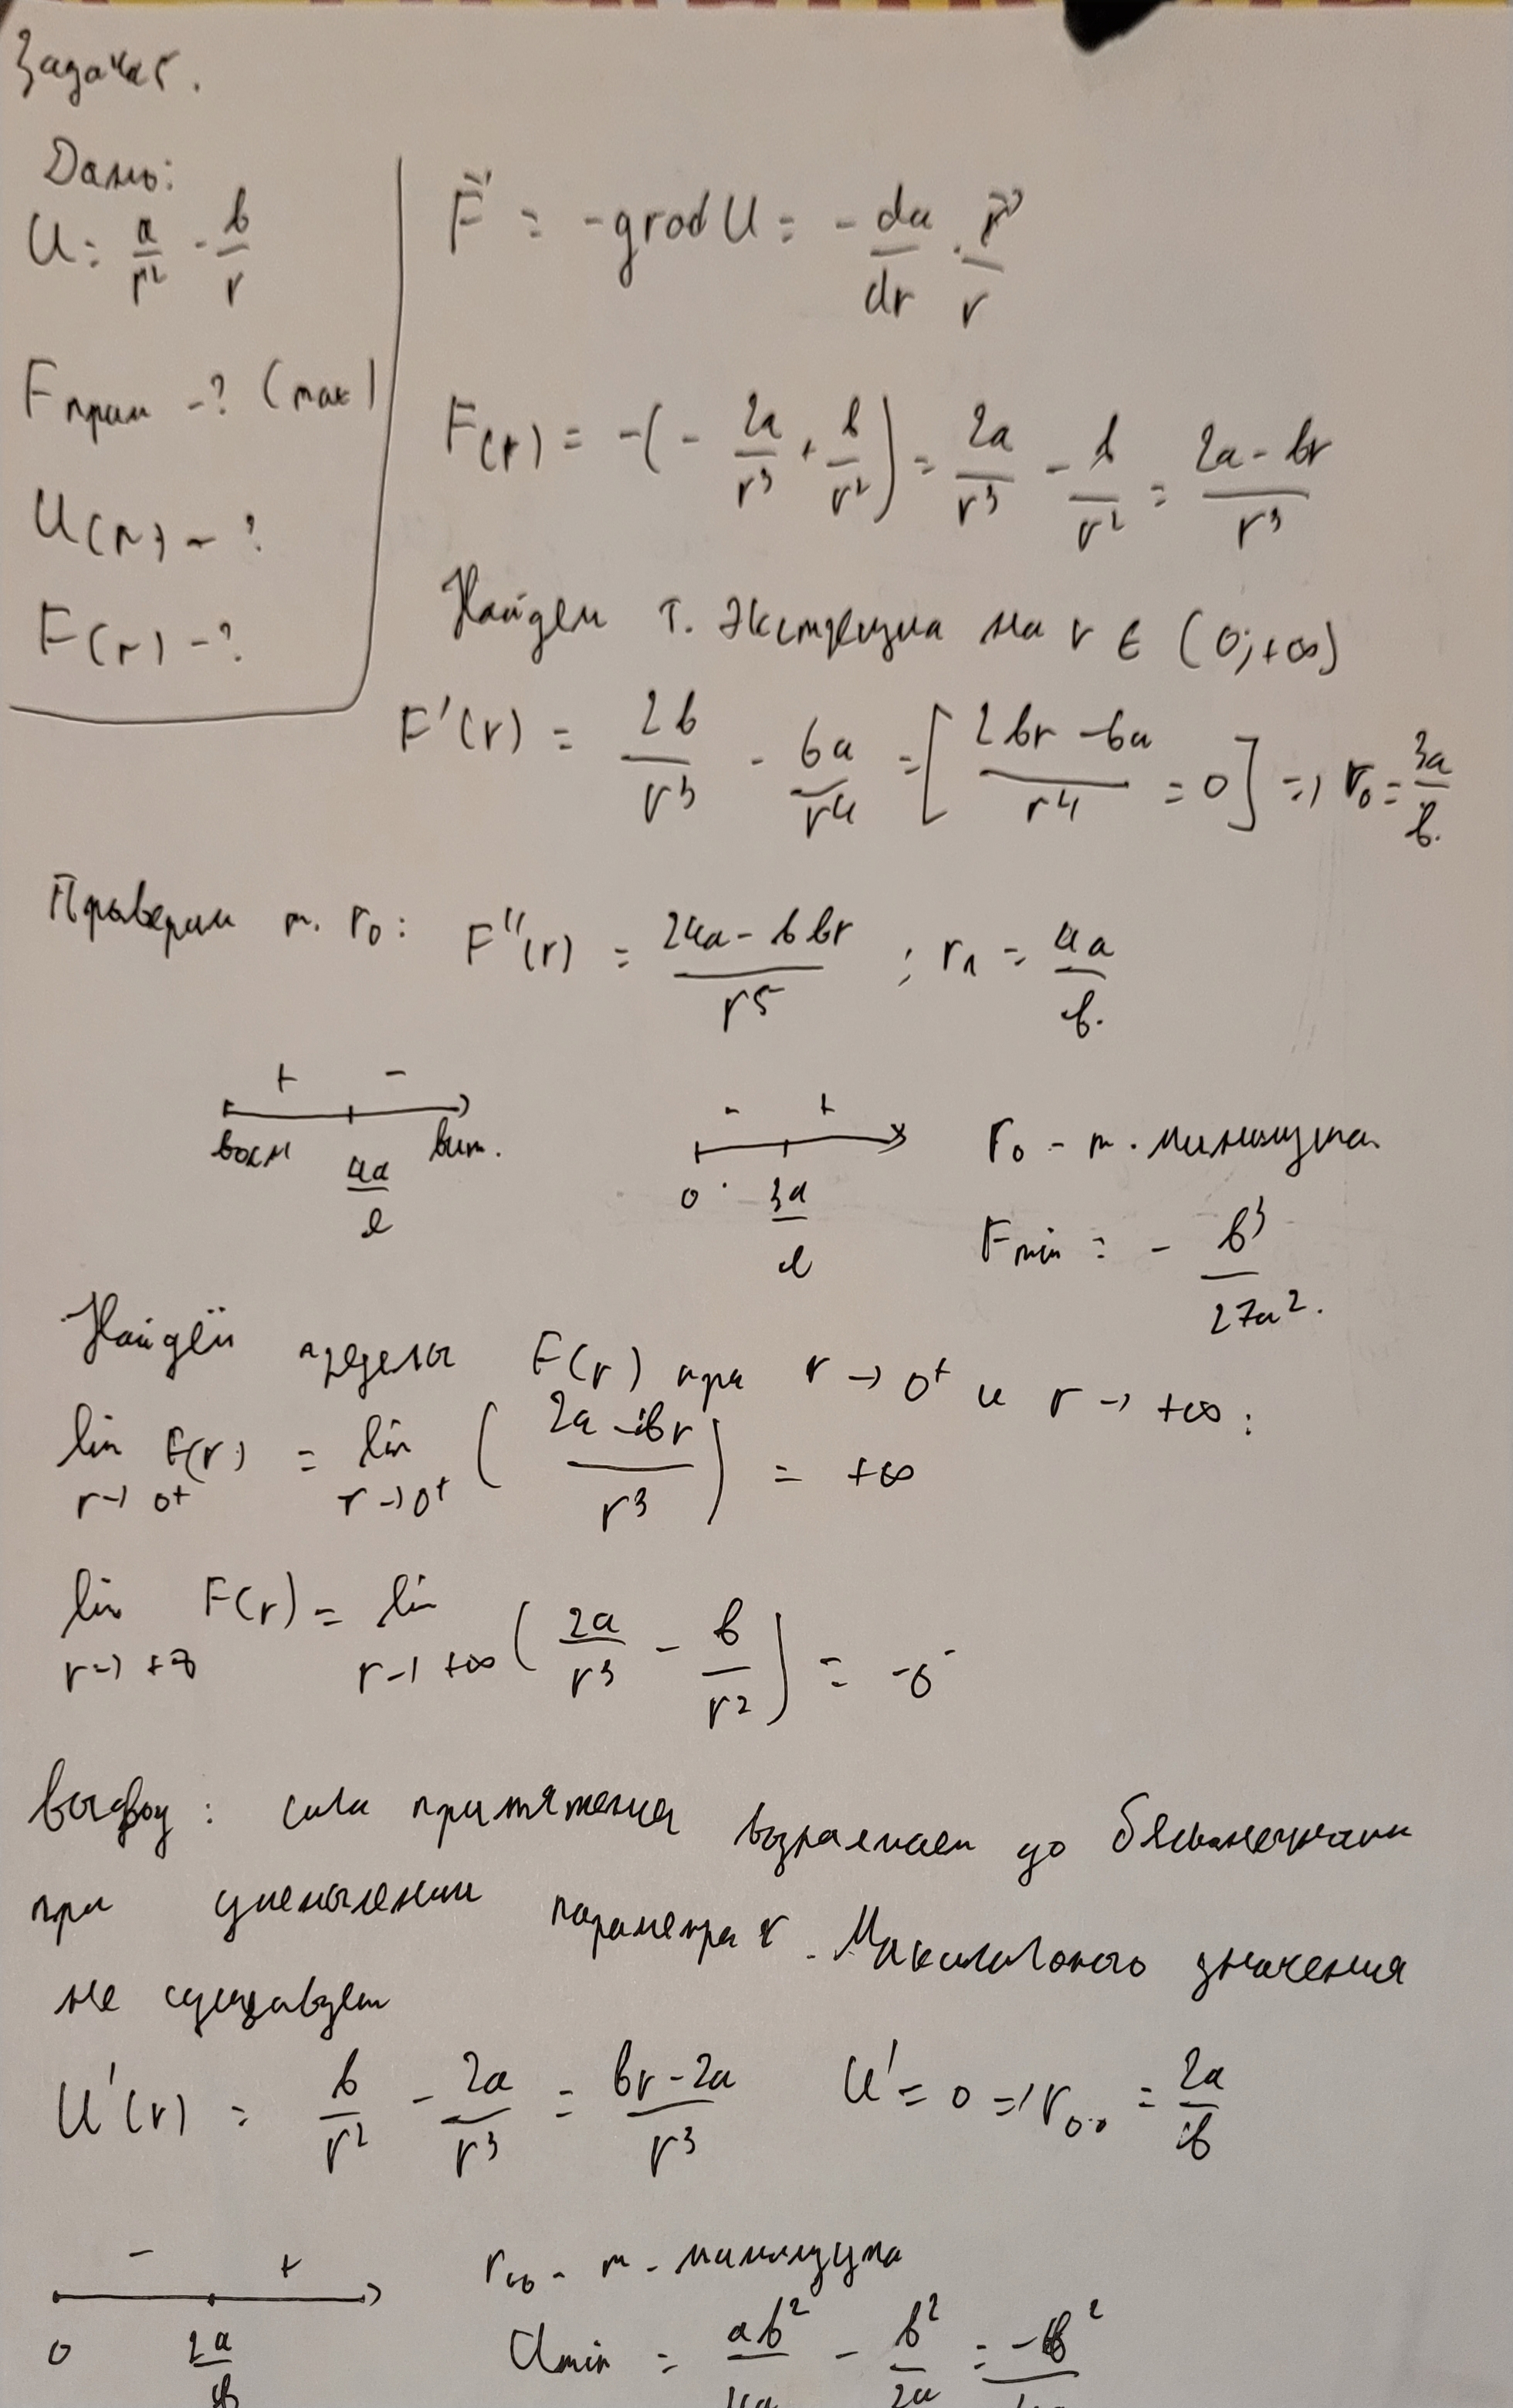 Задача 5.
Дано:
U = a/r² - b/r
Fприт -? (max)
U(r) - ?
F(r) - ?
F⃗ = -grad U = - du/dr · r⃗/r
F(r) = -(- 2a/r³ + b/r²) = 2a/r³ - b/r² = (2a - br)/r³
Найдем т. экстремума на r ∈ (0; +∞)
F'(r) = 2b/r³ - 6a/r⁴ = [(2br - 6a)/r⁴ = 0] => r₀ = 3a/b.
Проверим т. r₀: F''(r) = (24a - 6br)/r⁵ ; r₁ = 4a/b.
+ -
вогн 4a/b вып.
- +
0 3a/b
r₀ - т. минимума.
Fmin = - b³/27a².
Найдём пределы F(r) при r → 0⁺ и r → +∞:
lim r→0⁺ F(r) = lim r→0⁺ ((2a - br)/r³) = +∞
lim r→+∞ F(r) = lim r→+∞ (2a/r³ - b/r²) = -0⁻
Вывод: сила притяжения возрастает до бесконечности
при уменьшении параметра r. Максимального значения
не существует
U'(r) = b/r² - 2a/r³ = (br - 2a)/r³ U' = 0 => r₀₀ = 2a/b
- +
0 2a/b
r₀₀ - т. минимума
Umin = ab²/4a - b²/2a = -b²